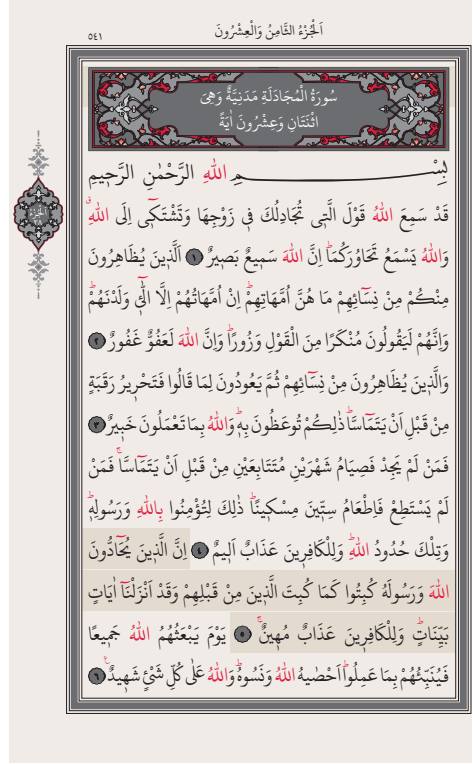 اَلْجُزْءُ الثَّامِنُ وَالْعِشْرُونَ
٥٤١
سُورَةُ الْمُجَادَلَةِ مَدَنِيَّةٌ وَهِيَ
اثْنَتَانِ وَعِشْرُونَ اٰيَةً
بِسْمِ اللّٰهِ الرَّحْمٰنِ الرَّحِيمِ
قَدْ سَمِعَ اللّٰهُ قَوْلَ الَّتِي تُجَادِلُكَ فِي زَوْجِهَا وَتَشْتَكِٓي اِلَى اللّٰهِۗ
وَاللّٰهُ يَسْمَعُ تَحَاوُرَكُمَاۜ اِنَّ اللّٰهَ سَمِيعٌ بَصِيرٌ ﴿١﴾ اَلَّذِينَ يُظَاهِرُونَ
مِنْكُمْ مِنْ نِسَٓائِهِمْ مَا هُنَّ اُمَّهَاتِهِمْۜ اِنْ اُمَّهَاتُهُمْ اِلَّا الّٰٓـِٔي وَلَدْنَهُمْۜ
وَاِنَّهُمْ لَيَقُولُونَ مُنْكَرًا مِنَ الْقَوْلِ وَزُورًاۜ وَاِنَّ اللّٰهَ لَعَفُوٌّ غَفُورٌ ﴿٢﴾
وَالَّذِينَ يُظَاهِرُونَ مِنْ نِسَٓائِهِمْ ثُمَّ يَعُودُونَ لِمَا قَالُوا فَتَحْرِيرُ رَقَبَةٍ
مِنْ قَبْلِ اَنْ يَتَمَٓاسَّاۜ ذٰلِكُمْ تُوعَظُونَ بِهٖۜ وَاللّٰهُ بِمَا تَعْمَلُونَ خَبِيرٌ ﴿٣﴾
فَمَنْ لَمْ يَجِدْ فَصِيَامُ شَهْرَيْنِ مُتَتَابِعَيْنِ مِنْ قَبْلِ اَنْ يَتَمَٓاسَّاۚ فَمَنْ
لَمْ يَسْتَطِعْ فَاِطْعَامُ سِتِّينَ مِسْكِينًاۜ ذٰلِكَ لِتُؤْمِنُوا بِاللّٰهِ وَرَسُولِهٖۜ
وَتِلْكَ حُدُودُ اللّٰهِۜ وَلِلْكَافِرِينَ عَذَابٌ اَلِيمٌ ﴿٤﴾ اِنَّ الَّذِينَ يُحَٓادُّونَ
اللّٰهَ وَرَسُولَهُ كُبِتُوا كَمَا كُبِتَ الَّذِينَ مِنْ قَبْلِهِمْ وَقَدْ اَنْزَلْنَٓا اٰيَاتٍ
بَيِّنَاتٍۜ وَلِلْكَافِرِينَ عَذَابٌ مُهِينٌۚ ﴿٥﴾ يَوْمَ يَبْعَثُهُمُ اللّٰهُ جَمِيعًا
فَيُنَبِّئُهُمْ بِمَا عَمِلُواۜ اَحْصٰيهُ اللّٰهُ وَنَسُوهُۜ وَاللّٰهُ عَلٰى كُلِّ شَيْءٍ شَهِيدٌ۟ ﴿٦﴾